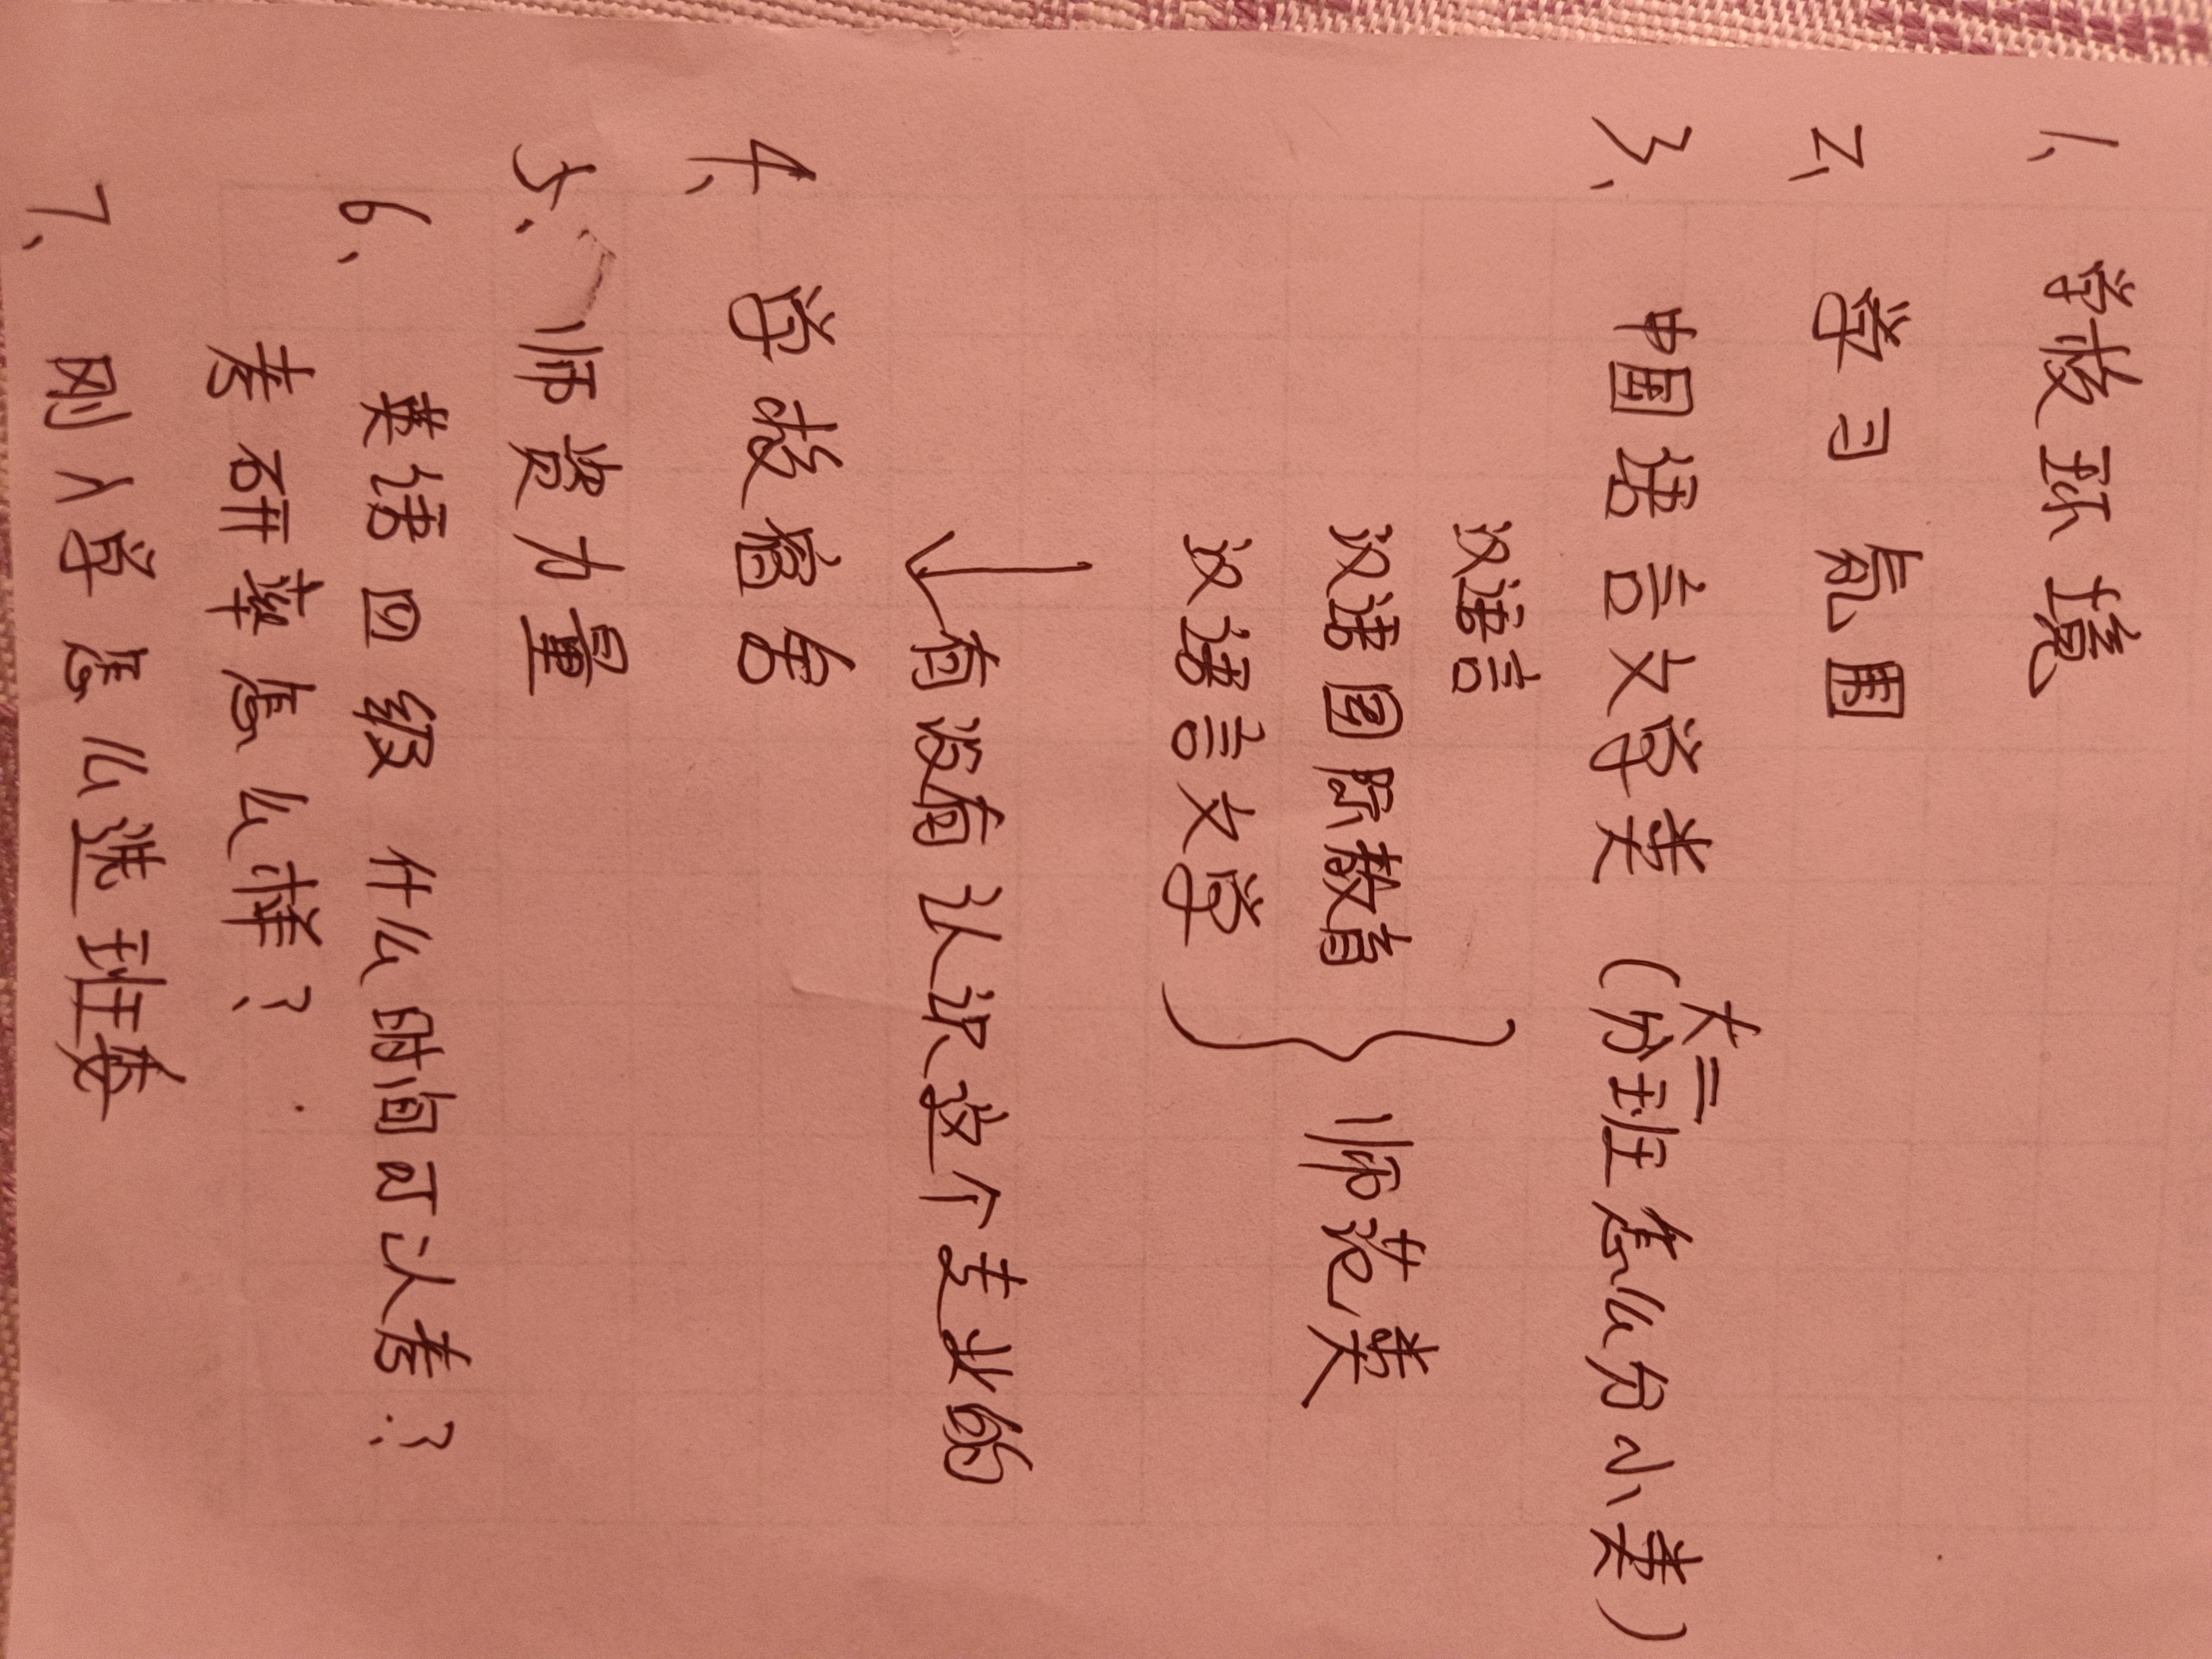 1、学校环境
2、学习氛围
3、中国语言文学类（大二分班怎么分小类）
汉语言
汉语国际教育
汉语言文学
师范类
有没有认识这个专业的
4、学校宿舍
5、师资力量
6、英语四级 什么时间可以考？
考研率怎么样？
7、刚入学怎么进班委